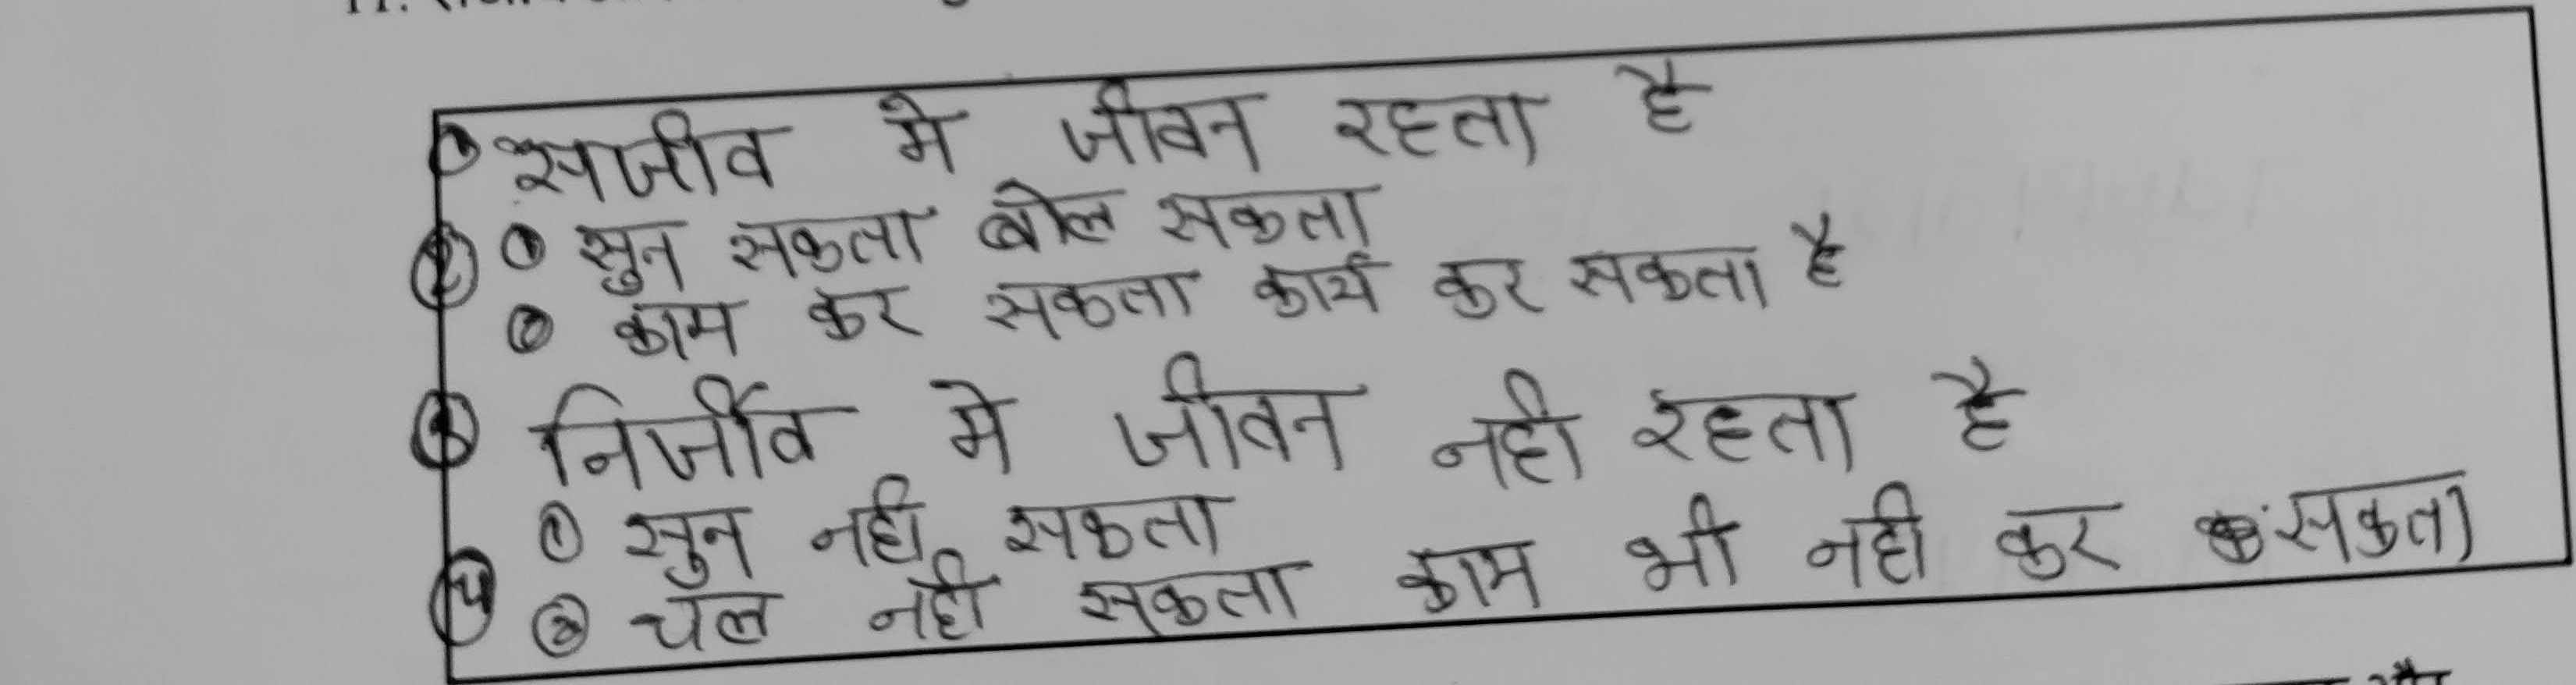 ① सजीव मे जीवन रहता है
② ① सुन सकता बोल सकता
② काम कर सकता कार्य कर सकता है
③ निर्जीव मे जीवन नही रहता है
① सुन नही सकता
④ ② चल नही सकता काम भी नही कर सकता